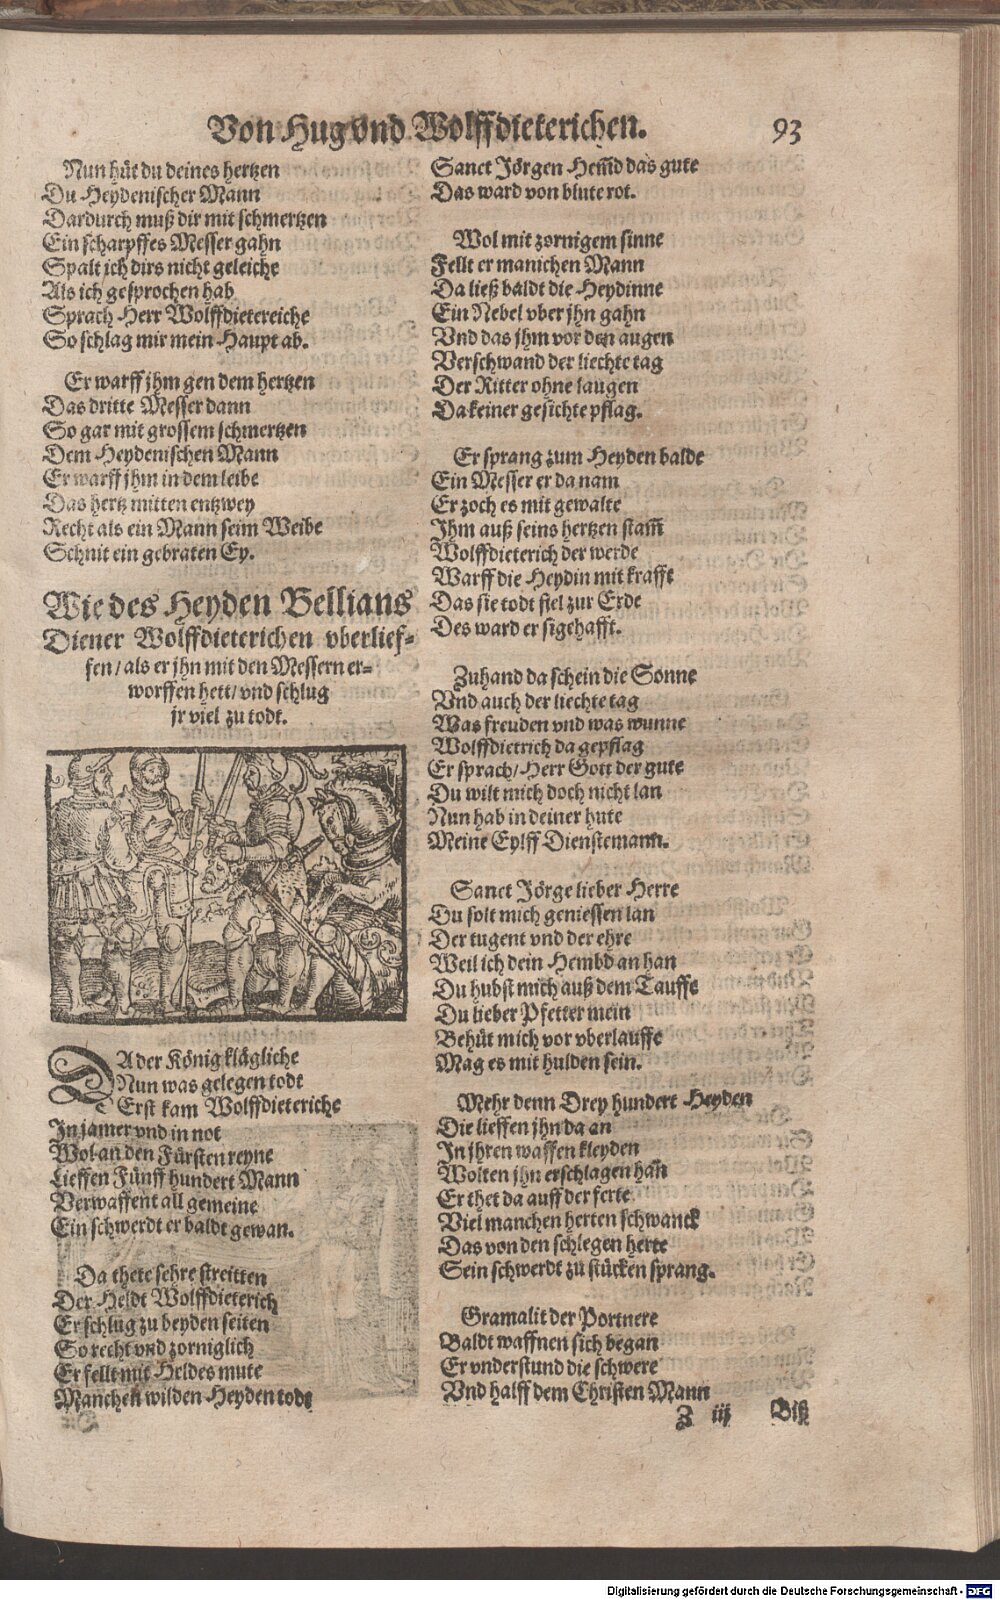 Von Hug vnd Wolffdieterichen. 93
Nun hüt du deines hertzen
Du Heydenischer Mann
Dardurch muß dir mit schmertzen
Ein scharpffes Messer gahn
Spalt ich dirs nicht geleiche
Als ich gesprochen hab
Sprach Herr Wolffdietereiche
So schlag mir mein Haupt ab.
Er warff jhm gen dem hertzen
Das dritte Messer dann
So gar mit grossem schmertzen
Dem Heydenischen Mann
Er warff jhm in dem leibe
Das hertz mitten entzwey
Recht als ein Mann seim Weibe
Schnit ein gebraten Ey.
Wie des Heyden Bellians
Diener Wolffdieterichen vberlief-
fen / als er jhn mit den Messern er-
worffen hett / vnd schlug
jr viel zu todt.
DA der König klägliche
Nun was gelegen todt
Erst kam Wolffdieteriche
In jamer vnd in not
Wol an den Fürsten reyne
Lieffen Fünff hundert Mann
Verwaffent all gemeine
Ein schwerdt er baldt gewan.
Da thete sehre streitten
Der Heldt Wolffdieterich
Er schlug zu beyden seiten
So recht vnd zorniglich
Er fellt mit Heldes mute
Manchen wilden Heyden todt
Sanct Jörgen Hem̃d das gute
Das ward von blute rot.
Wol mit zornigem sinne
Fellt er manichen Mann
Da ließ baldt die Heydinne
Ein Nebel vber jhn gahn
Vnd das jhm vor den augen
Verschwand der liechte tag
Der Ritter ohne laugen
Da keiner gesichte pflag.
Er sprang zum Heyden balde
Ein Messer er da nam
Er zoch es mit gewalte
Ihm auß seins hertzen stam̃
Wolffdieterich der werde
Warff die Heydin mit krafft
Das sie todt fiel zur Erde
Des ward er sigehafft.
Zuhand da schein die Sonne
Vnd auch der liechte tag
Was freuden vnd was wunne
Wolffdietrich da gepflag
Er sprach / Herr Gott der gute
Du wilt mich doch nicht lan
Nun hab in deiner hute
Meine Eylff Dienstemann.
Sanct Jörge lieber Herre
Du solt mich geniessen lan
Der tugent vnd der ehre
Weil ich dein Hembd an han
Du hubst mich auß dem Tauffe
Du lieber Pfetter mein
Behüt mich vor vberlauffe
Mag es mit hulden sein.
Mehr denn Drey hundert Heyden
Die lieffen jhn da an
In jhren waffen kleyden
Wolten jhn erschlagen han̄
Er thet da auff der ferte
Viel manchen herten schwanck
Das von den schlegen herte
Sein schwerdt zu stücken sprang.
Gramalit der Portnere
Baldt waffnen sich began
Er vnderstund die schwere
Vnd halff dem Christen Mann
Z iij Biß
Digitalisierung gefördert durch die Deutsche Forschungsgemeinschaft - DFG